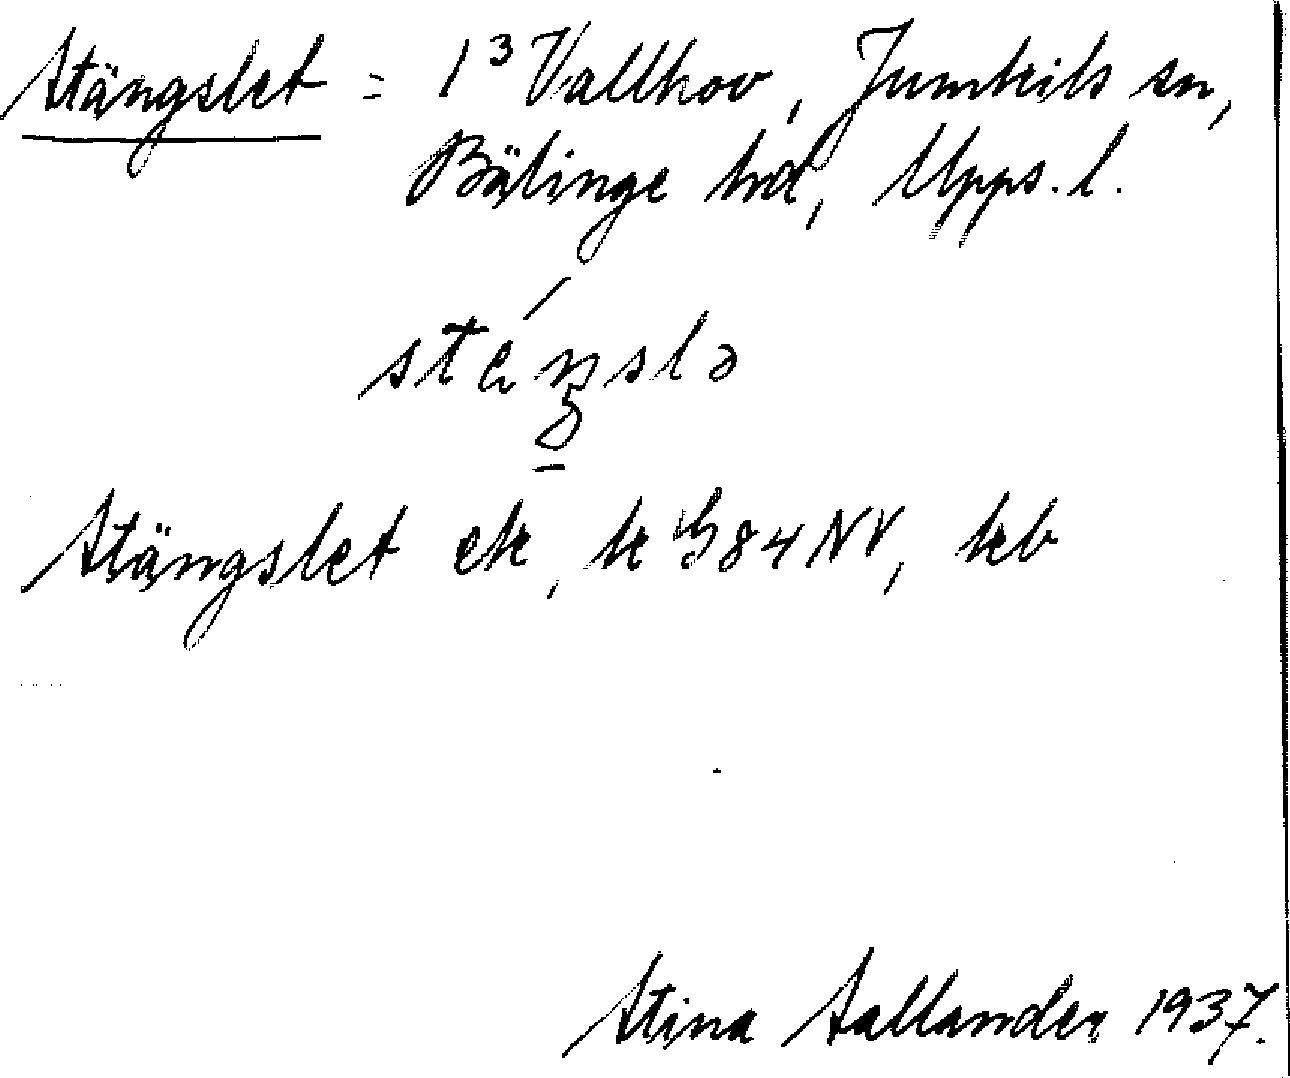 Stängslet = 1³ Vallhov, Jumkils sn,
Bälinge hd, Upps. l.
Stängslet ek, k G84NV, kb
Stina Sallander 1937.